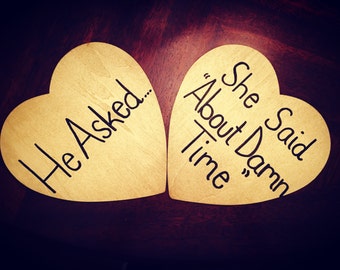 He Asked...
She Said
"About Damn
Time"